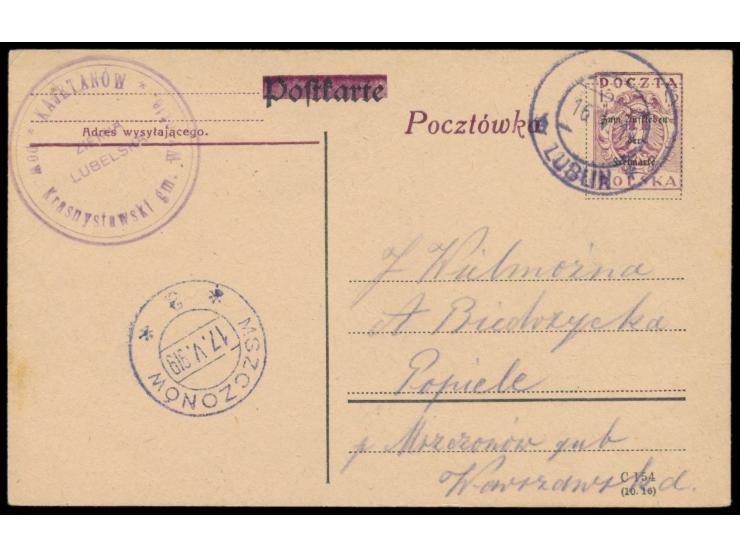 KAJETANÓW
ZIEMIA
LUBELSKA
pow. Krasnystawski gm. W
Postkarte
Adres wysyłającego.
Pocztówka
POCZTA
Zum Aufkleben
der
Freimarke
POLSKA
16
LUBLIN
J Wielmożna
A Biedrzycka
Popiele
p Mszczonów gub
Warszawska.
MSZCZONÓW
17.V.919
C 154
(10. 16)